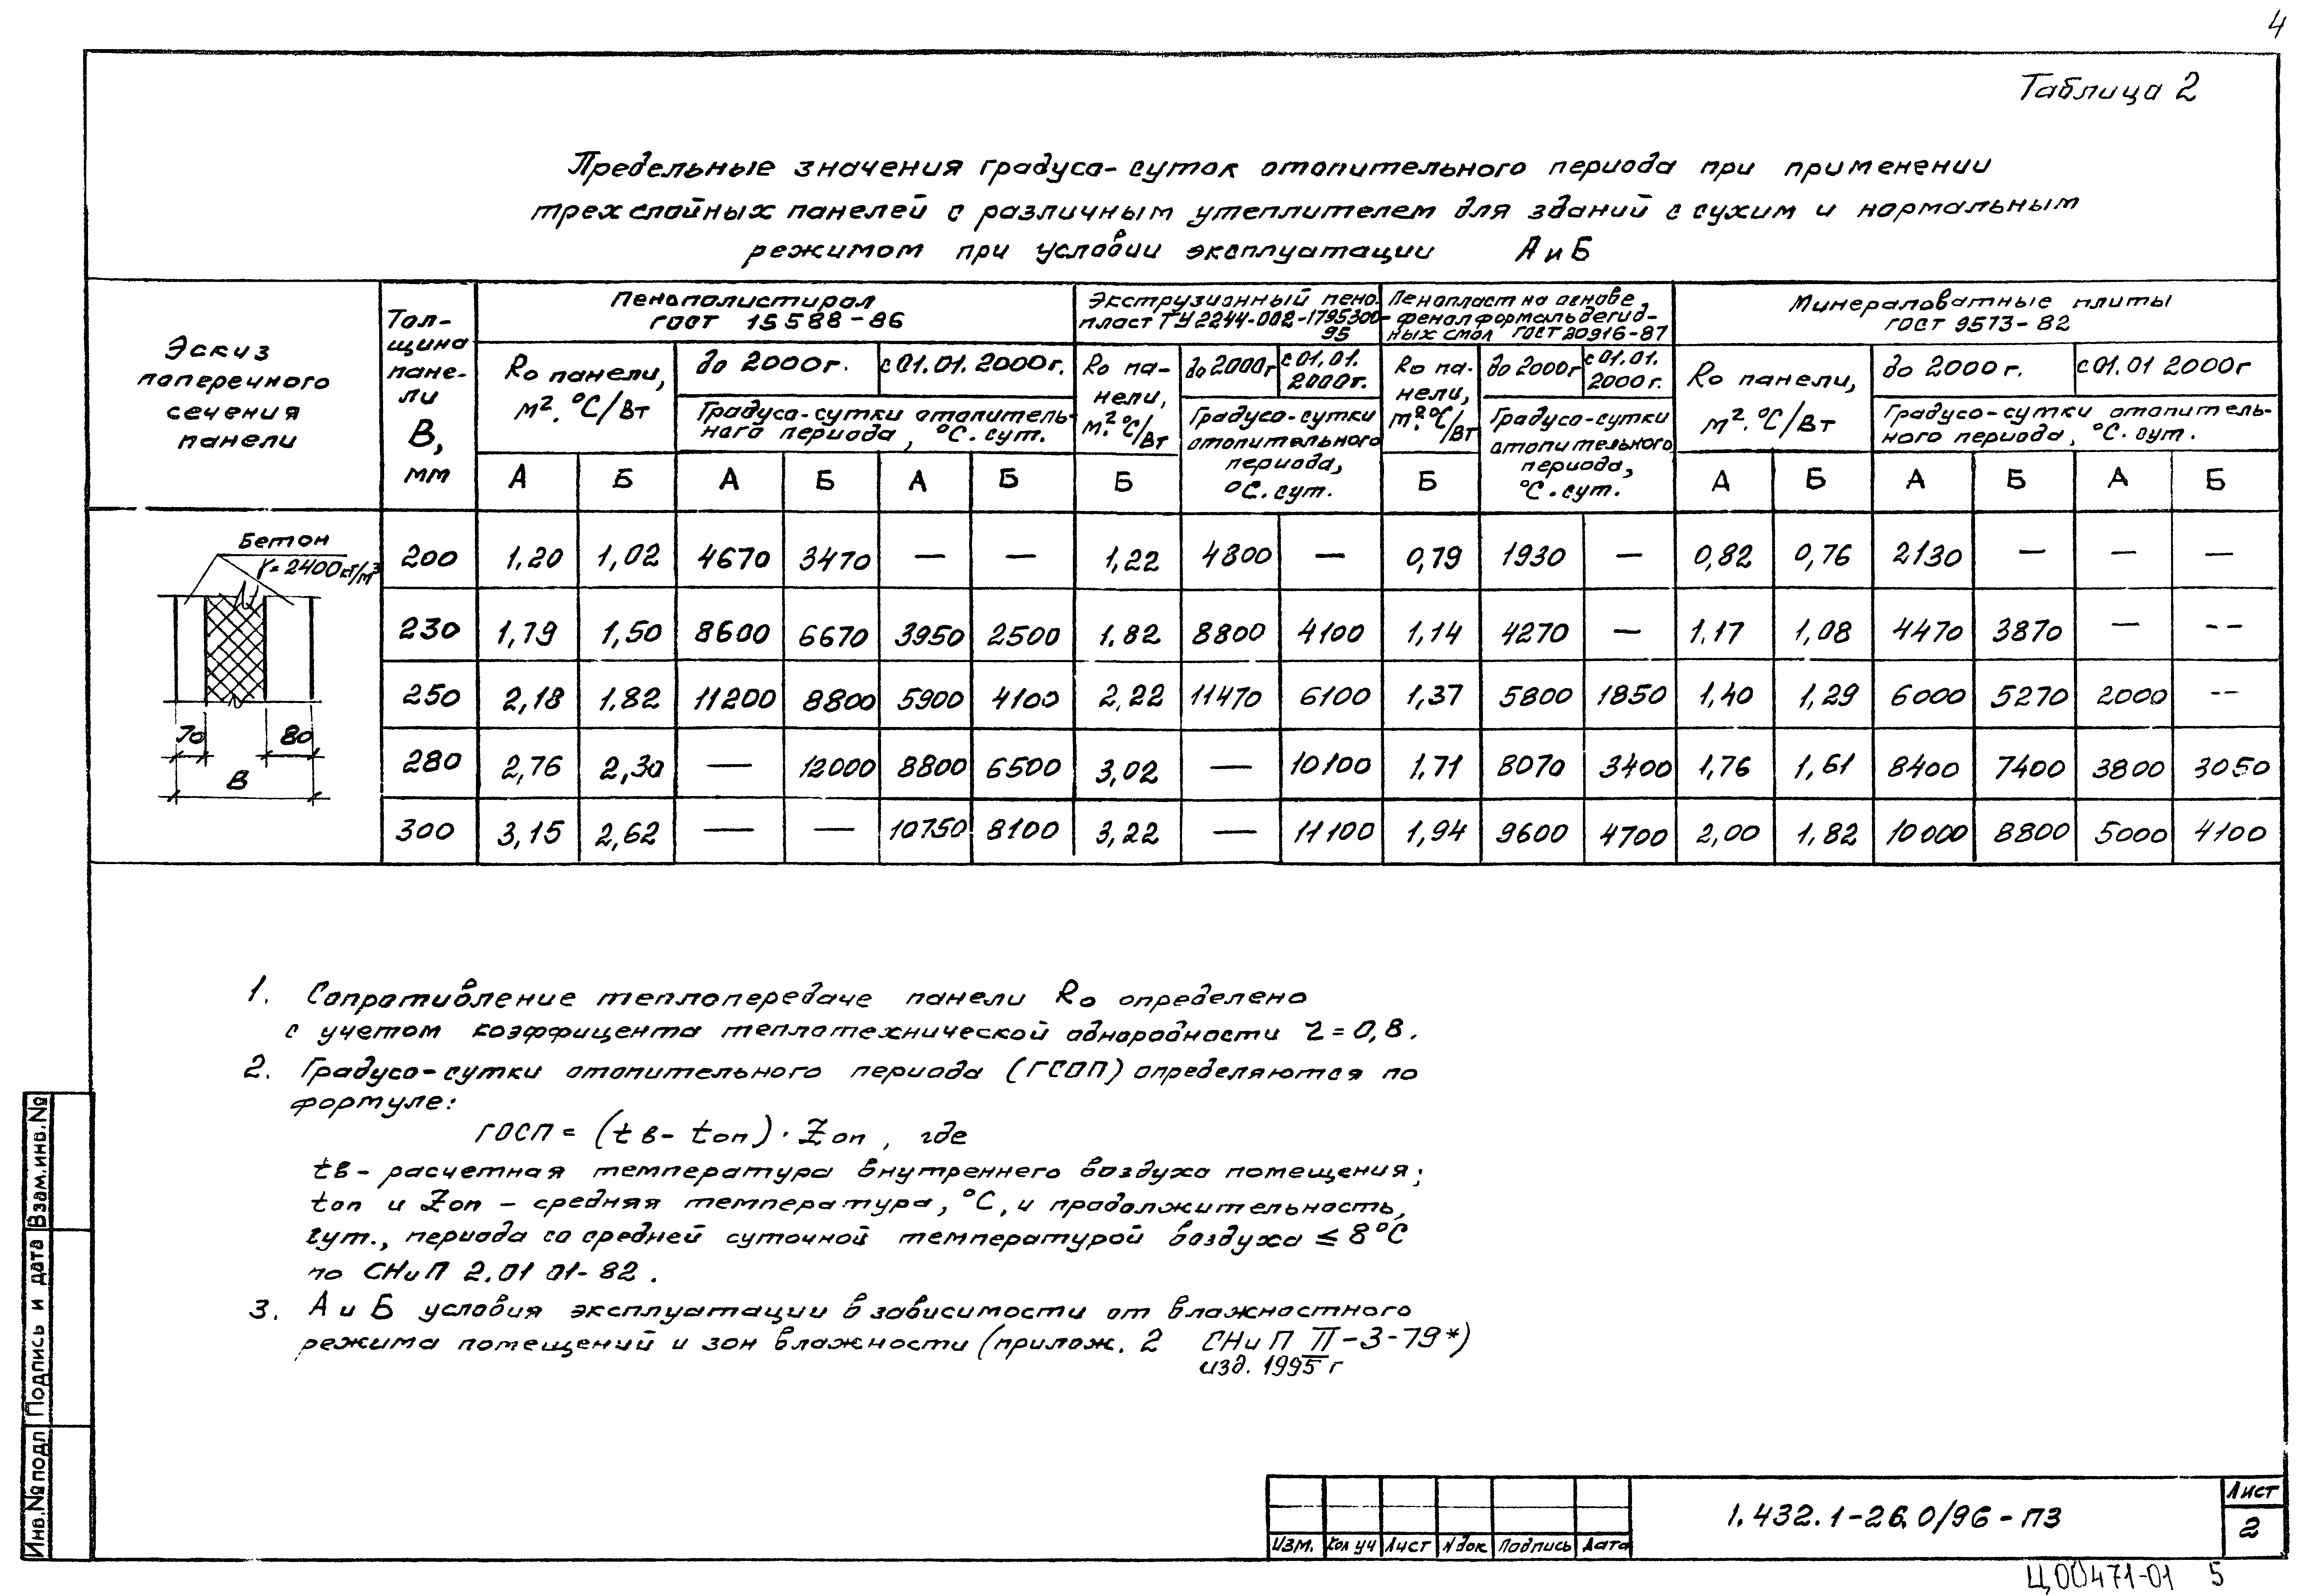 4
Таблица 2
Предельные значения градусо-суток отопительного периода при применении
трехслойных панелей с различным утеплителем для зданий с сухим и нормальным
режимом при условии эксплуатации А и Б
Эскиз
поперечного
сечения
панели
Тол-
щина
пане-
ли
В,
мм
Пенополистирол
ГОСТ 15588-86
Ro панели,
м²·°С/Вт
до 2000г.
с 01.01.2000г.
Градусо-сутки отопитель-
ного периода, °С·сут.
А Б А Б А Б
Экструзионный пено-
пласт ТУ 2244-002-1795300-
95
Ro па-
нели,
м²·°С/Вт
до 2000г
с 01.01.
2000г.
Градусо-сутки
отопительного
периода,
°С·сут.
Б
Пенопласт на основе
фенолформальдегид-
ных смол ГОСТ 20916-87
Ro па-
нели,
м²·°С/Вт
до 2000г
с 01.01.
2000г.
Градусо-сутки
отопительного
периода,
°С·сут.
Б
Минераловатные плиты
ГОСТ 9573-82
Ro панели,
м²·°С/Вт
до 2000г.
с 01.01 2000г
Градусо-сутки отопитель-
ного периода, °С·сут.
А Б А Б А Б
Бетон
γ=2400кг/м³
70 80
В
200 1,20 1,02 4670 3470 — — 1,22 4800 — 0,79 1930 — 0,82 0,76 2130 — — —
230 1,79 1,50 8600 6670 3950 2500 1.82 8800 4100 1,14 4270 — 1.17 1,08 4470 3870 — --
250 2,18 1.82 11200 8800 5900 4100 2,22 11470 6100 1,37 5800 1850 1,40 1,29 6000 5270 2000 --
280 2,76 2,30 — 12000 8800 6500 3,02 — 10100 1.71 8070 3400 1,76 1,61 8400 7400 3800 3050
300 3,15 2,62 — — 10750 8100 3,22 — 11100 1,94 9600 4700 2,00 1,82 10000 8800 5000 4100
1. Сопротивление теплопередаче панели Ro определено
с учетом коэффицента теплотехнической однородности r=0,8.
2. Градусо-сутки отопительного периода (ГСОП) определяются по
формуле:
ГОСП = (tв - tоп) · Zоп, где
tв - расчетная температура внутреннего воздуха помещения;
tоп и Zоп - средняя температура, °С, и продолжительность,
сут., периода со средней суточной температурой воздуха ≤ 8°С
по СНиП 2.01 01-82.
3. А и Б условия эксплуатации в зависимости от влажностного
режима помещений и зон влажности (прилож. 2 СНиП II-3-79*)
изд. 1995 г
Взам.инв.№
Подпись и дата
Инв.№ подл
Изм. Кол уч Лист N док Подпись Дата
1.432.1-26.0/96-ПЗ
Лист
2
Ц00471-01 5